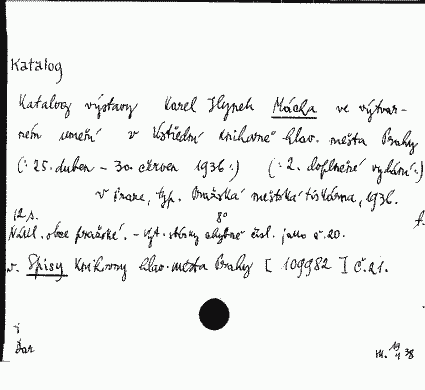 Katalog
Katalog výstavy Karel Hynek Mácha ve výtvar-
ném umění v Ústřední knihovně hlav. města Prahy
(: 25. duben - 30. červen 1936 :) (: 2. doplněné vydání :)
v Praze, typ. Pražská městská tiskárna, 1936.
12 s. 8°
Nákl. obce pražské. - Vyt. sbírky chybně čísl. jako č. 20.
v. Spisy Knihovny hlav. města Prahy [ 109982 ] č. 21.
i
Dar
19 38